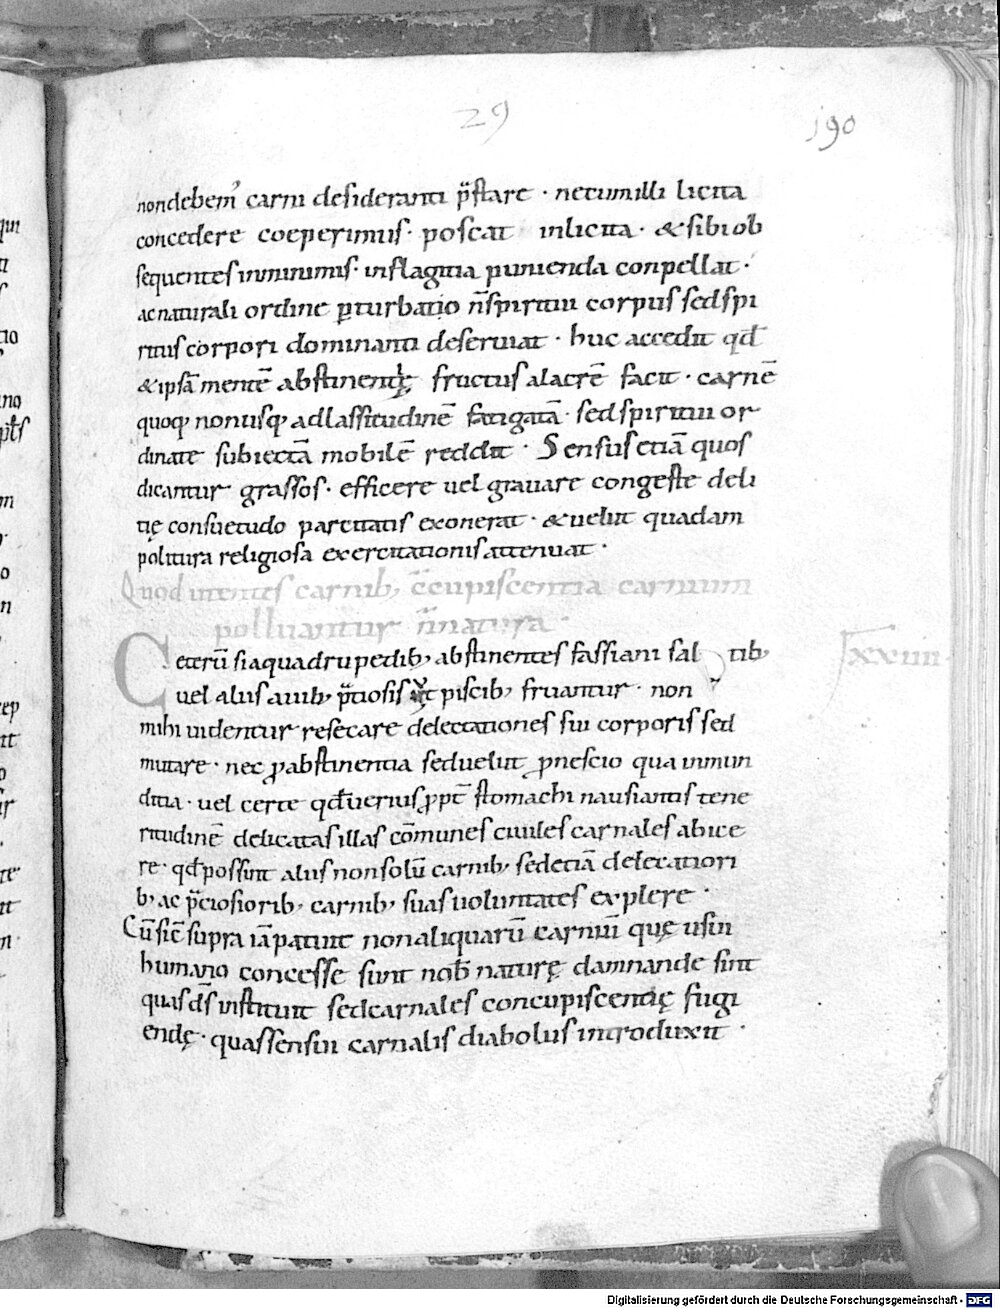 29
190
non debem᾽ carni desideranti p̄stare · ne cum illi licita
concedere coeperimus · poscat inlicita · & sibi ob
sequentes in minimis · in flagitia punienda conpellat ·
ac naturali ordine ꝑturbato n̄ spiritui corpus sed spi
ritus corpori dominanti deseruiat · huc accedit qđ
& ipsā mentē abstinentię fructus alacrē facit · carnē
quoq; non usq; ad lassitudinē fatigatā · sed spiritui or
dinate subiectā mobilē reddit · Sensus etiā quos
dicantur grassos · efficere uel grauare congeste deli
tię consuetudo parcitatis exonerat · & uelut quadam
politura religiosa exercitationis attenuat ·
Quod utentes carnib; c̄cupiscentia carnium
polluantur n̄ natura ·
Ceterū si a quadrupedib; abstinentes fassiani sal tib;
uel aliis auib; p̄tiosis aut piscib; fruantur · non
xxiiii ·
mihi uidentur resecare delectationes sui corporis sed
mutare · nec ꝓ abstinentia sed uelut ꝓ nescio qua inmun
ditia · uel certe qđ uerius ꝓpt̄ stomachi nausiantis tene
ritudinē delicatas illas cōmunes ciuiles carnales abice
re · qđ possint aliis non solū carnib; sed etiā delicatiori
b; ac p̄ciosiorib; carnib; suas uoluntates explere ·
Cū sic̄ supra iā patuit non aliquarū carniū quę usui
humano concesse sunt nob̄ naturę damnande sint
quas d̄s instituit sed carnales concupiscentię fugi
endę · quas sensui carnalis diabolus introduxit ·
Digitalisierung gefördert durch die Deutsche Forschungsgemeinschaft - DFG